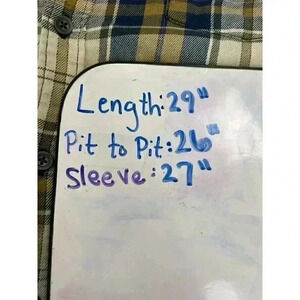 Length: 29"
Pit to Pit: 26"
Sleeve: 27"